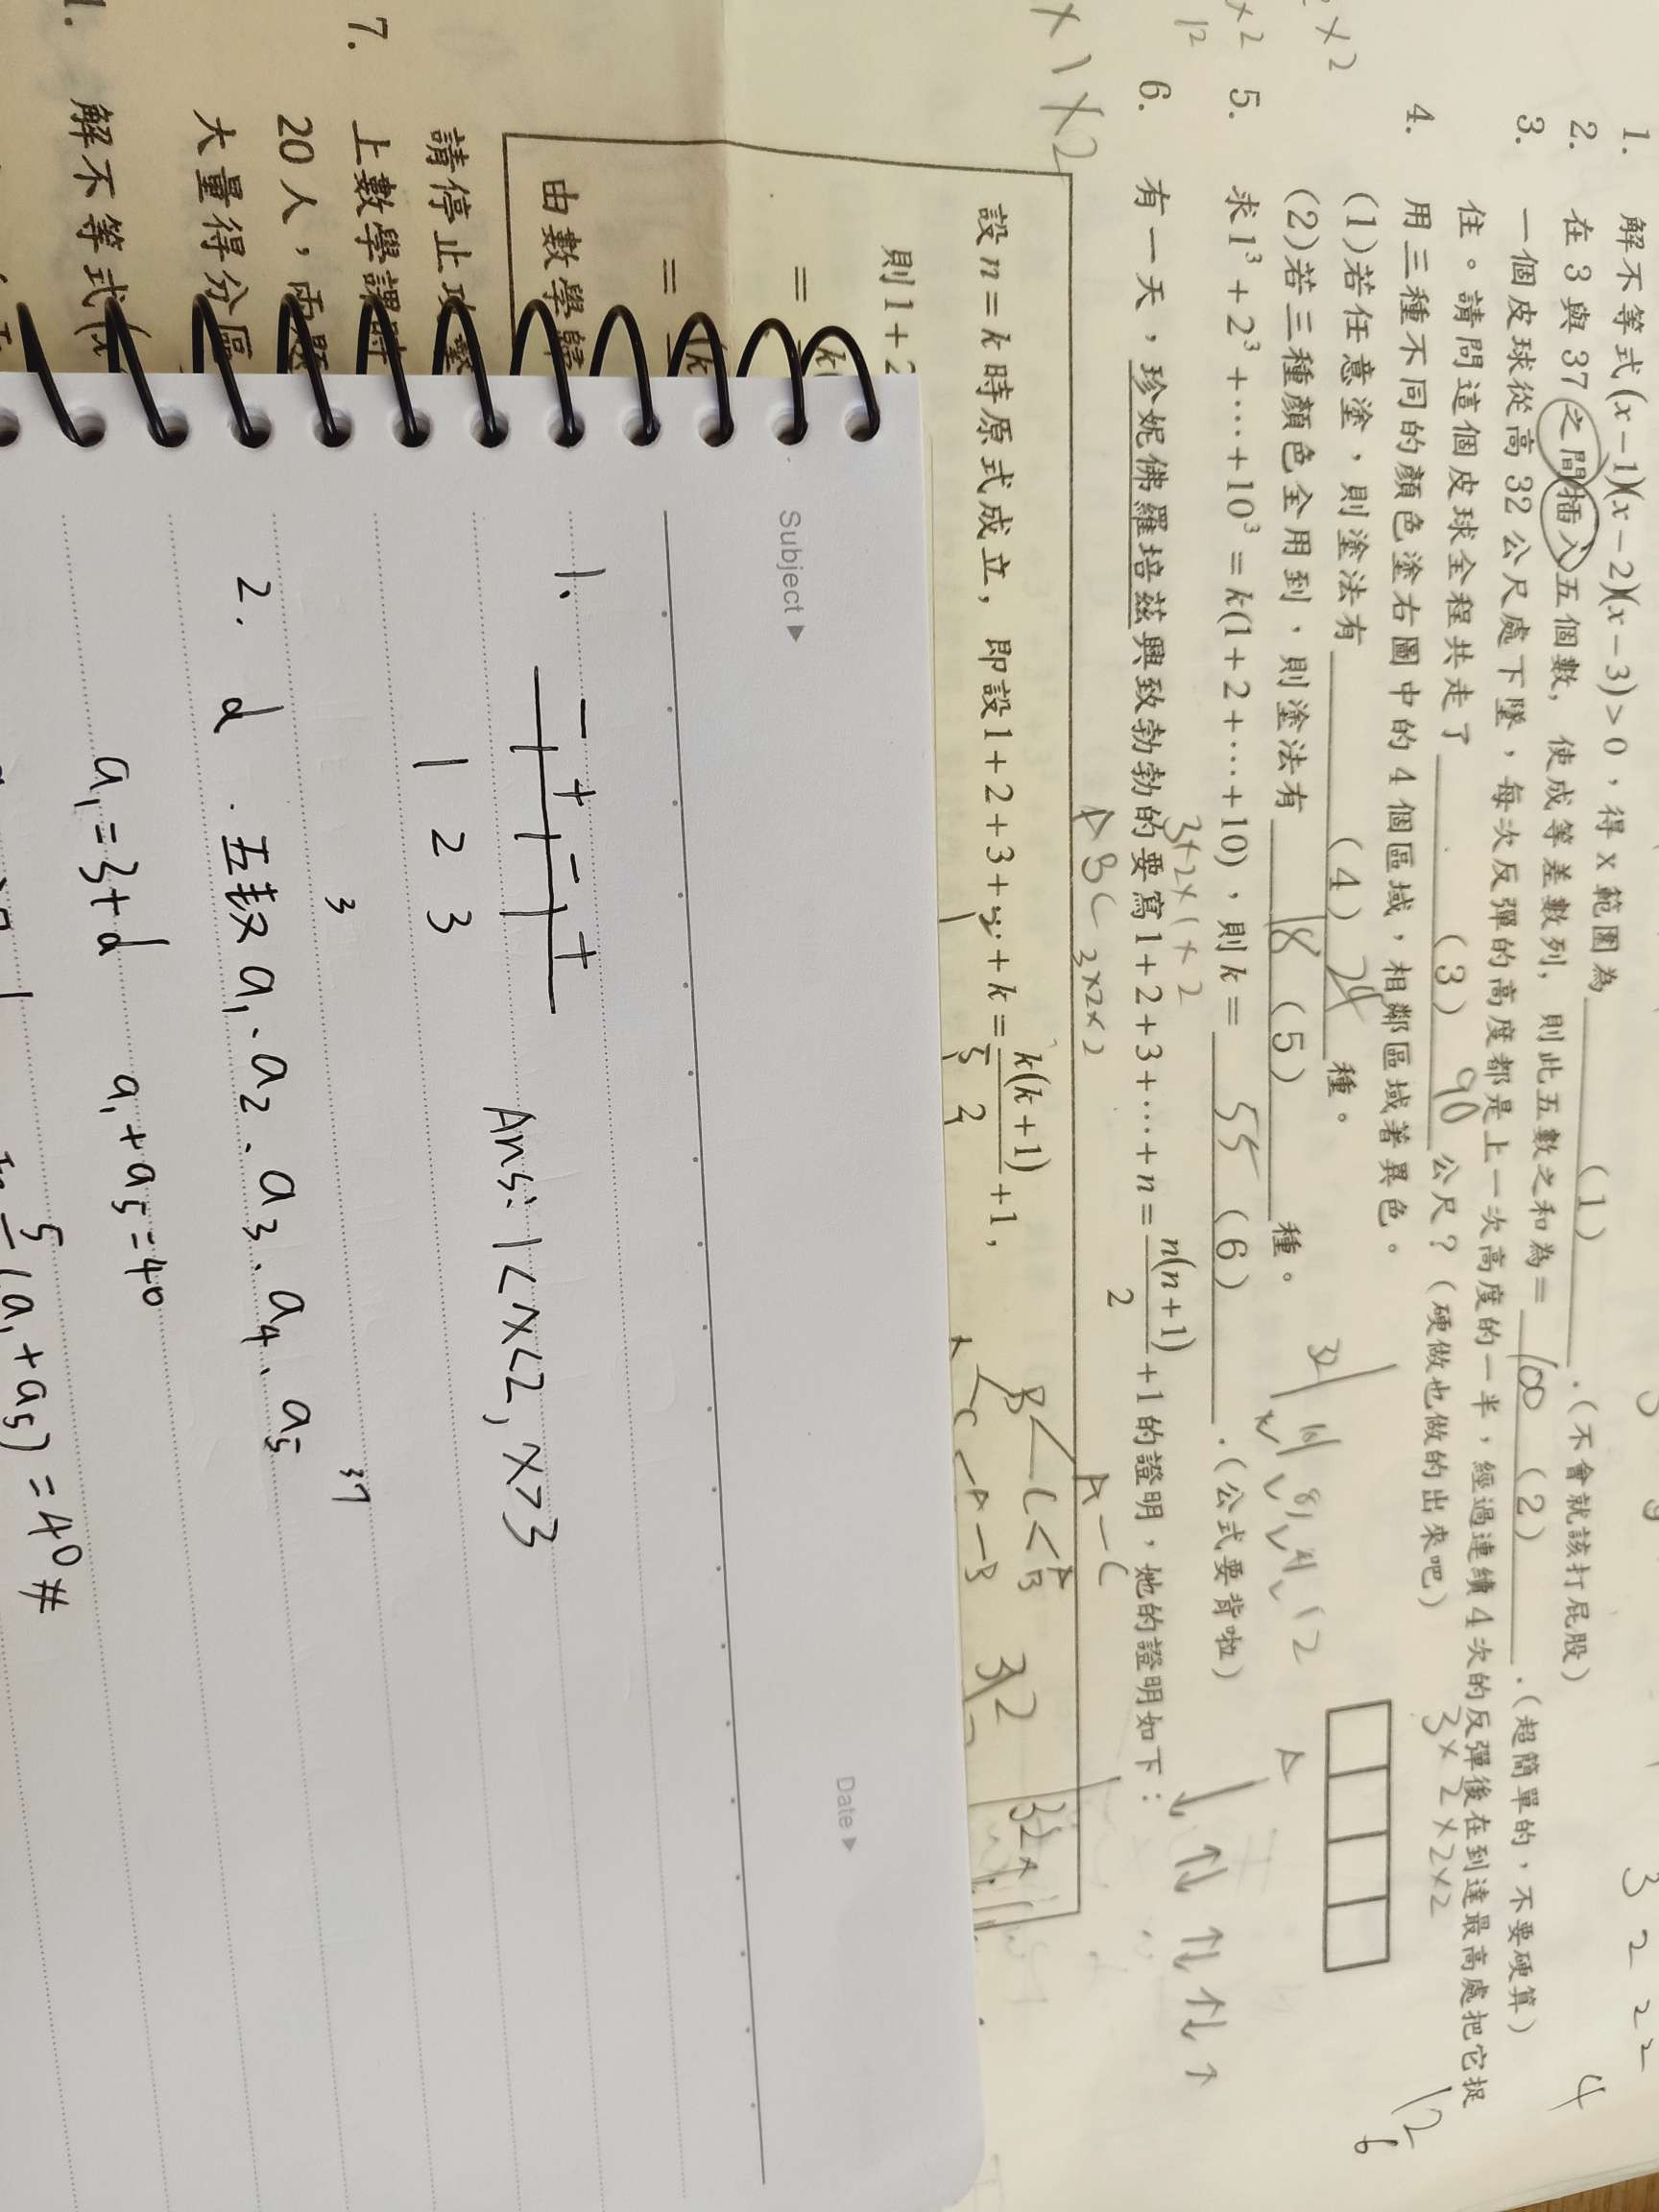 1. 解不等式(x-1)(x-2)(x-3)>0，得x範圍為____(1)____.(不會就該打屁股)
2. 在3與37之間插入五個數，使成等差數列，則此五數之和為=__100__(2)____.(超簡單的，不要硬算)
3. 一個皮球從高32公尺處下墜，每次反彈的高度都是上一次高度的一半，經過連續4次的反彈後在到達最高處把它捉
住。請問這個皮球全程共走了____(3)__90__公尺？(硬做也做的出來吧)
3×2×2×2
4. 用三種不同的顏色塗右圖中的4個區域，相鄰區域著異色。
(1)若任意塗，則塗法有____(4)__24__種。
(2)若三種顏色全用到，則塗法有__18__(5)____種。
5. 求1³+2³+⋯+10³=k(1+2+⋯+10)，則k=__55__(6)____.(公式要背啦)
6. 有一天，珍妮佛羅培茲興致勃勃的要寫1+2+3+⋯+n=n(n+1)/2+1的證明，她的證明如下：
設n=k時原式成立，即設1+2+3+⋯+k=k(k+1)/2+1，
則1+2
=
=
由數學歸
請停止攻擊
7. 上數學課時
20人，兩題
大量得分區
1. 解不等式(x
×2
×2
12
×1×2
3×2×1×2
ABC 3×2×2
32
16
8
4
12
A-C
B
C
A-B
32
3 2 2 2
4
12
6
Subject ▶
Date ▶
1. - + - +
1 2 3
Ans: 1<x<2, x>3
3
37
2. d . 五數 a₁、a₂、a₃、a₄、a₅
a₁=3+d a₁+a₅=40
5/ (a₁+a₅)=40#